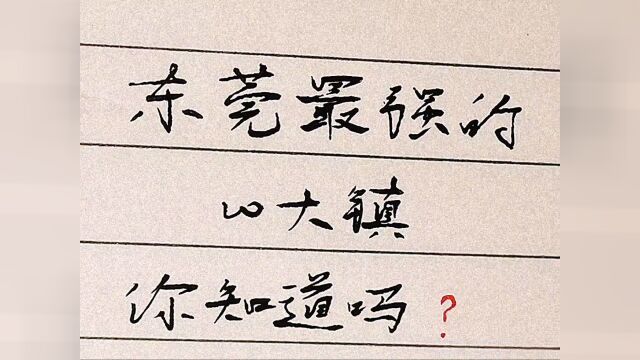 东莞最强的
心大镇
你知道吗?